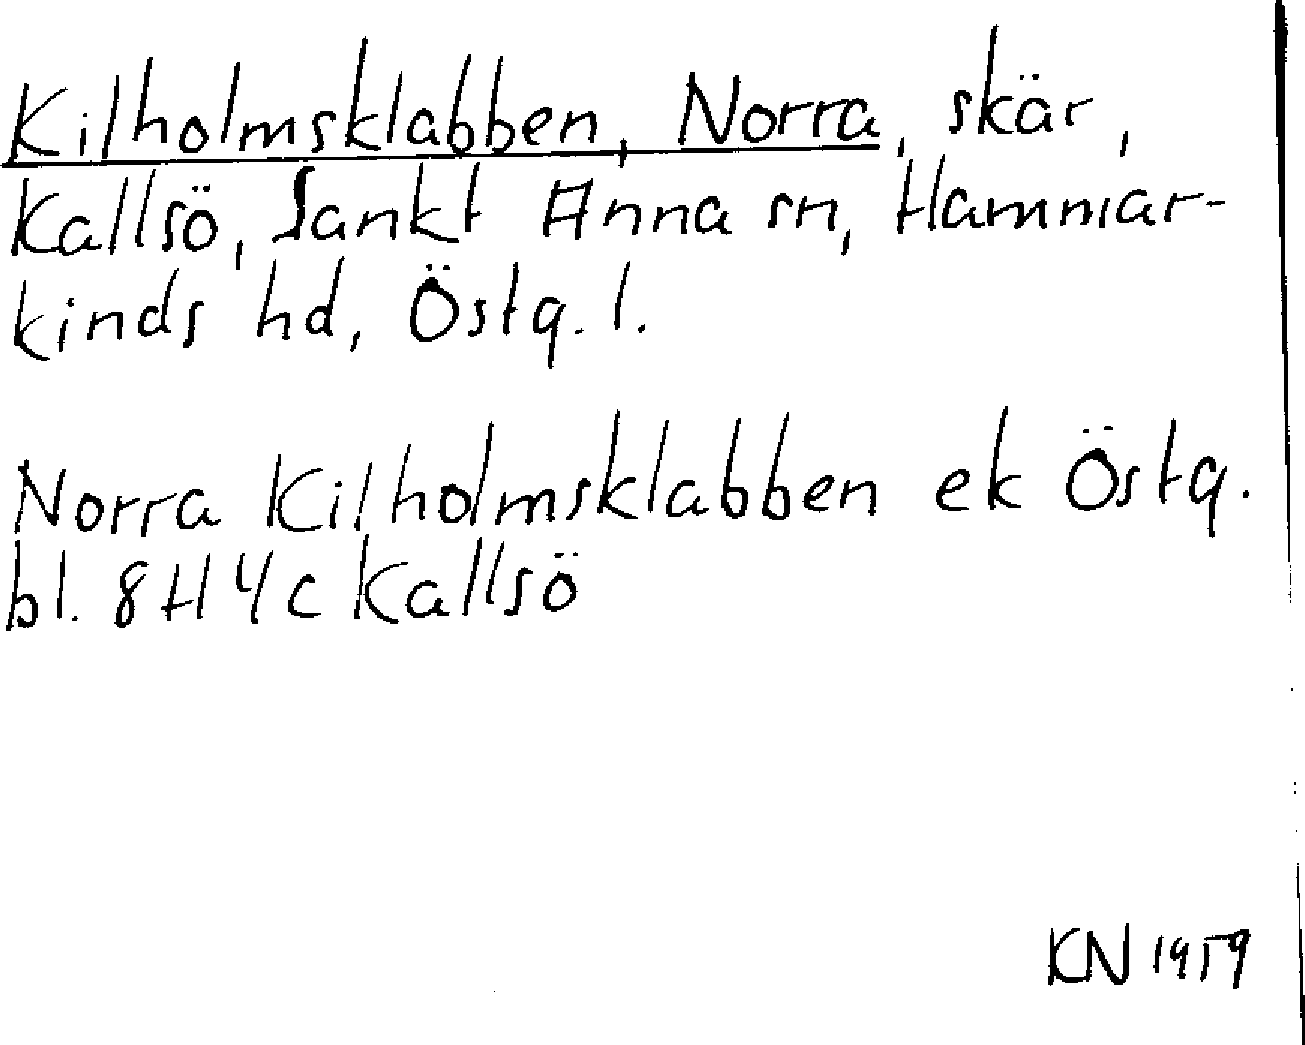 Kilholmsklabben, Norra, skär,
Kallsö, Sankt Anna sn, Hammar-
kinds hd, Östg. l.
Norra Kilholmsklabben ek Östg.
bl. 8H 4c Kallsö
KN 1959